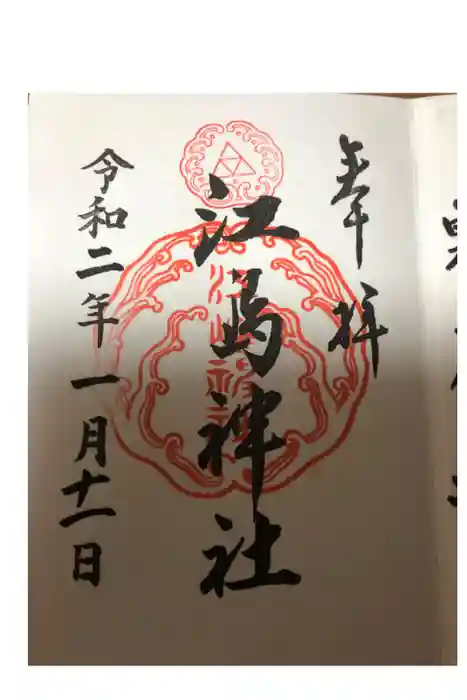 奉拝
江島神社
令和二年一月十一日